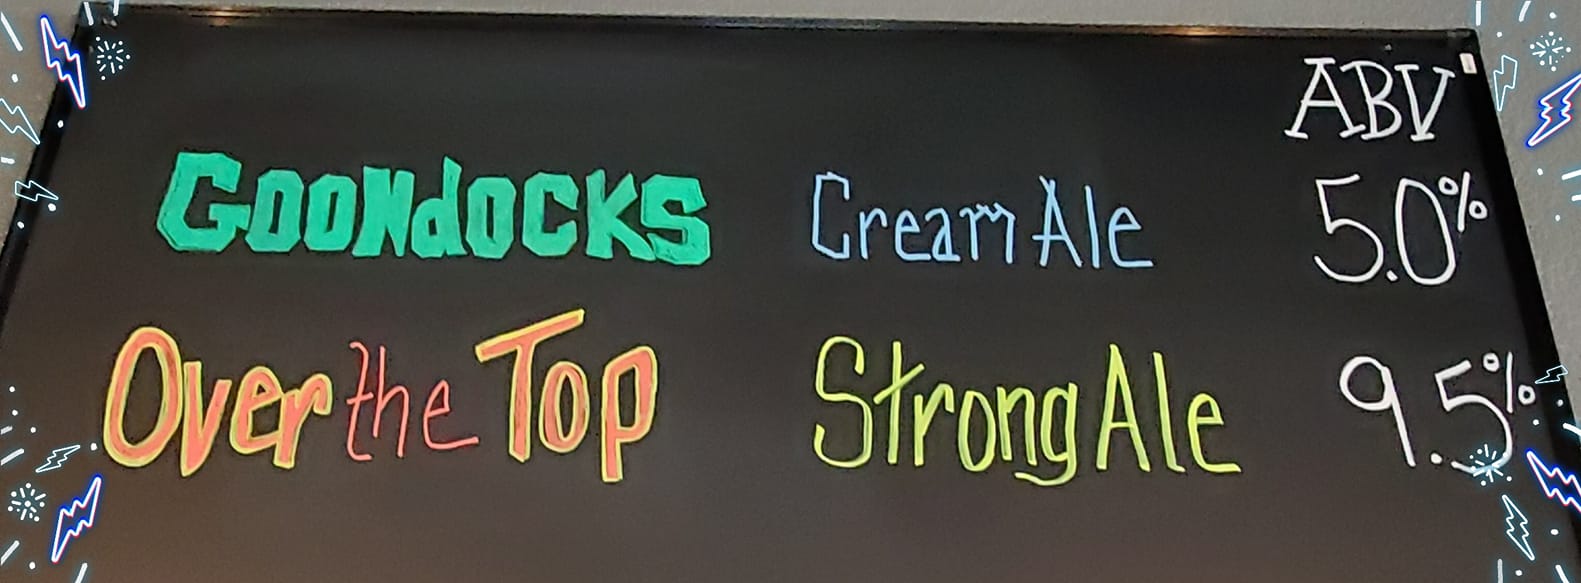 ABV
GOONdOCKS Cream Ale 5.0%
Over the Top Strong Ale 9.5%